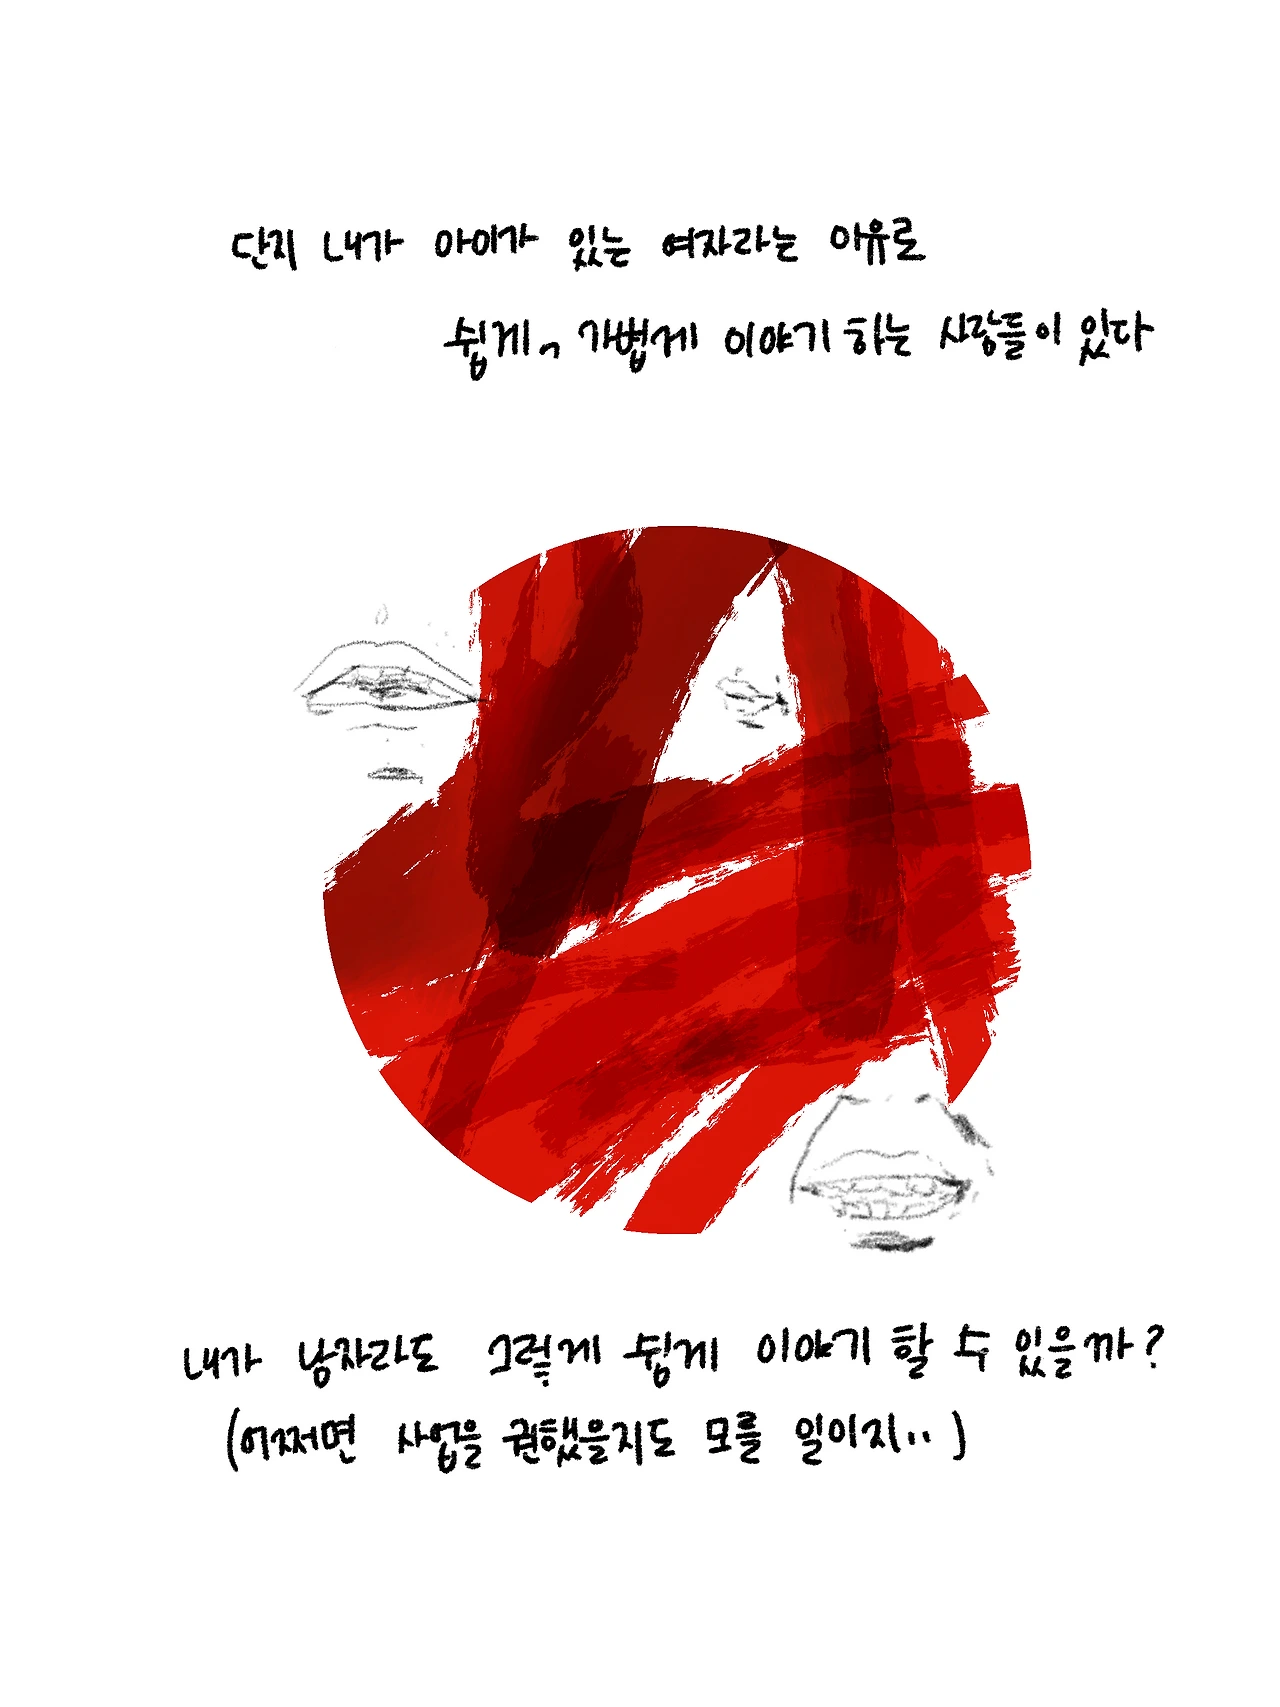 단지 내가 아이가 있는 여자라는 이유로
쉽게, 가볍게 이야기 하는 사람들이 있다
내가 남자라도 그렇게 쉽게 이야기 할 수 있을까?
(어쩌면 사업을 권했을지도 모를 일이지..)